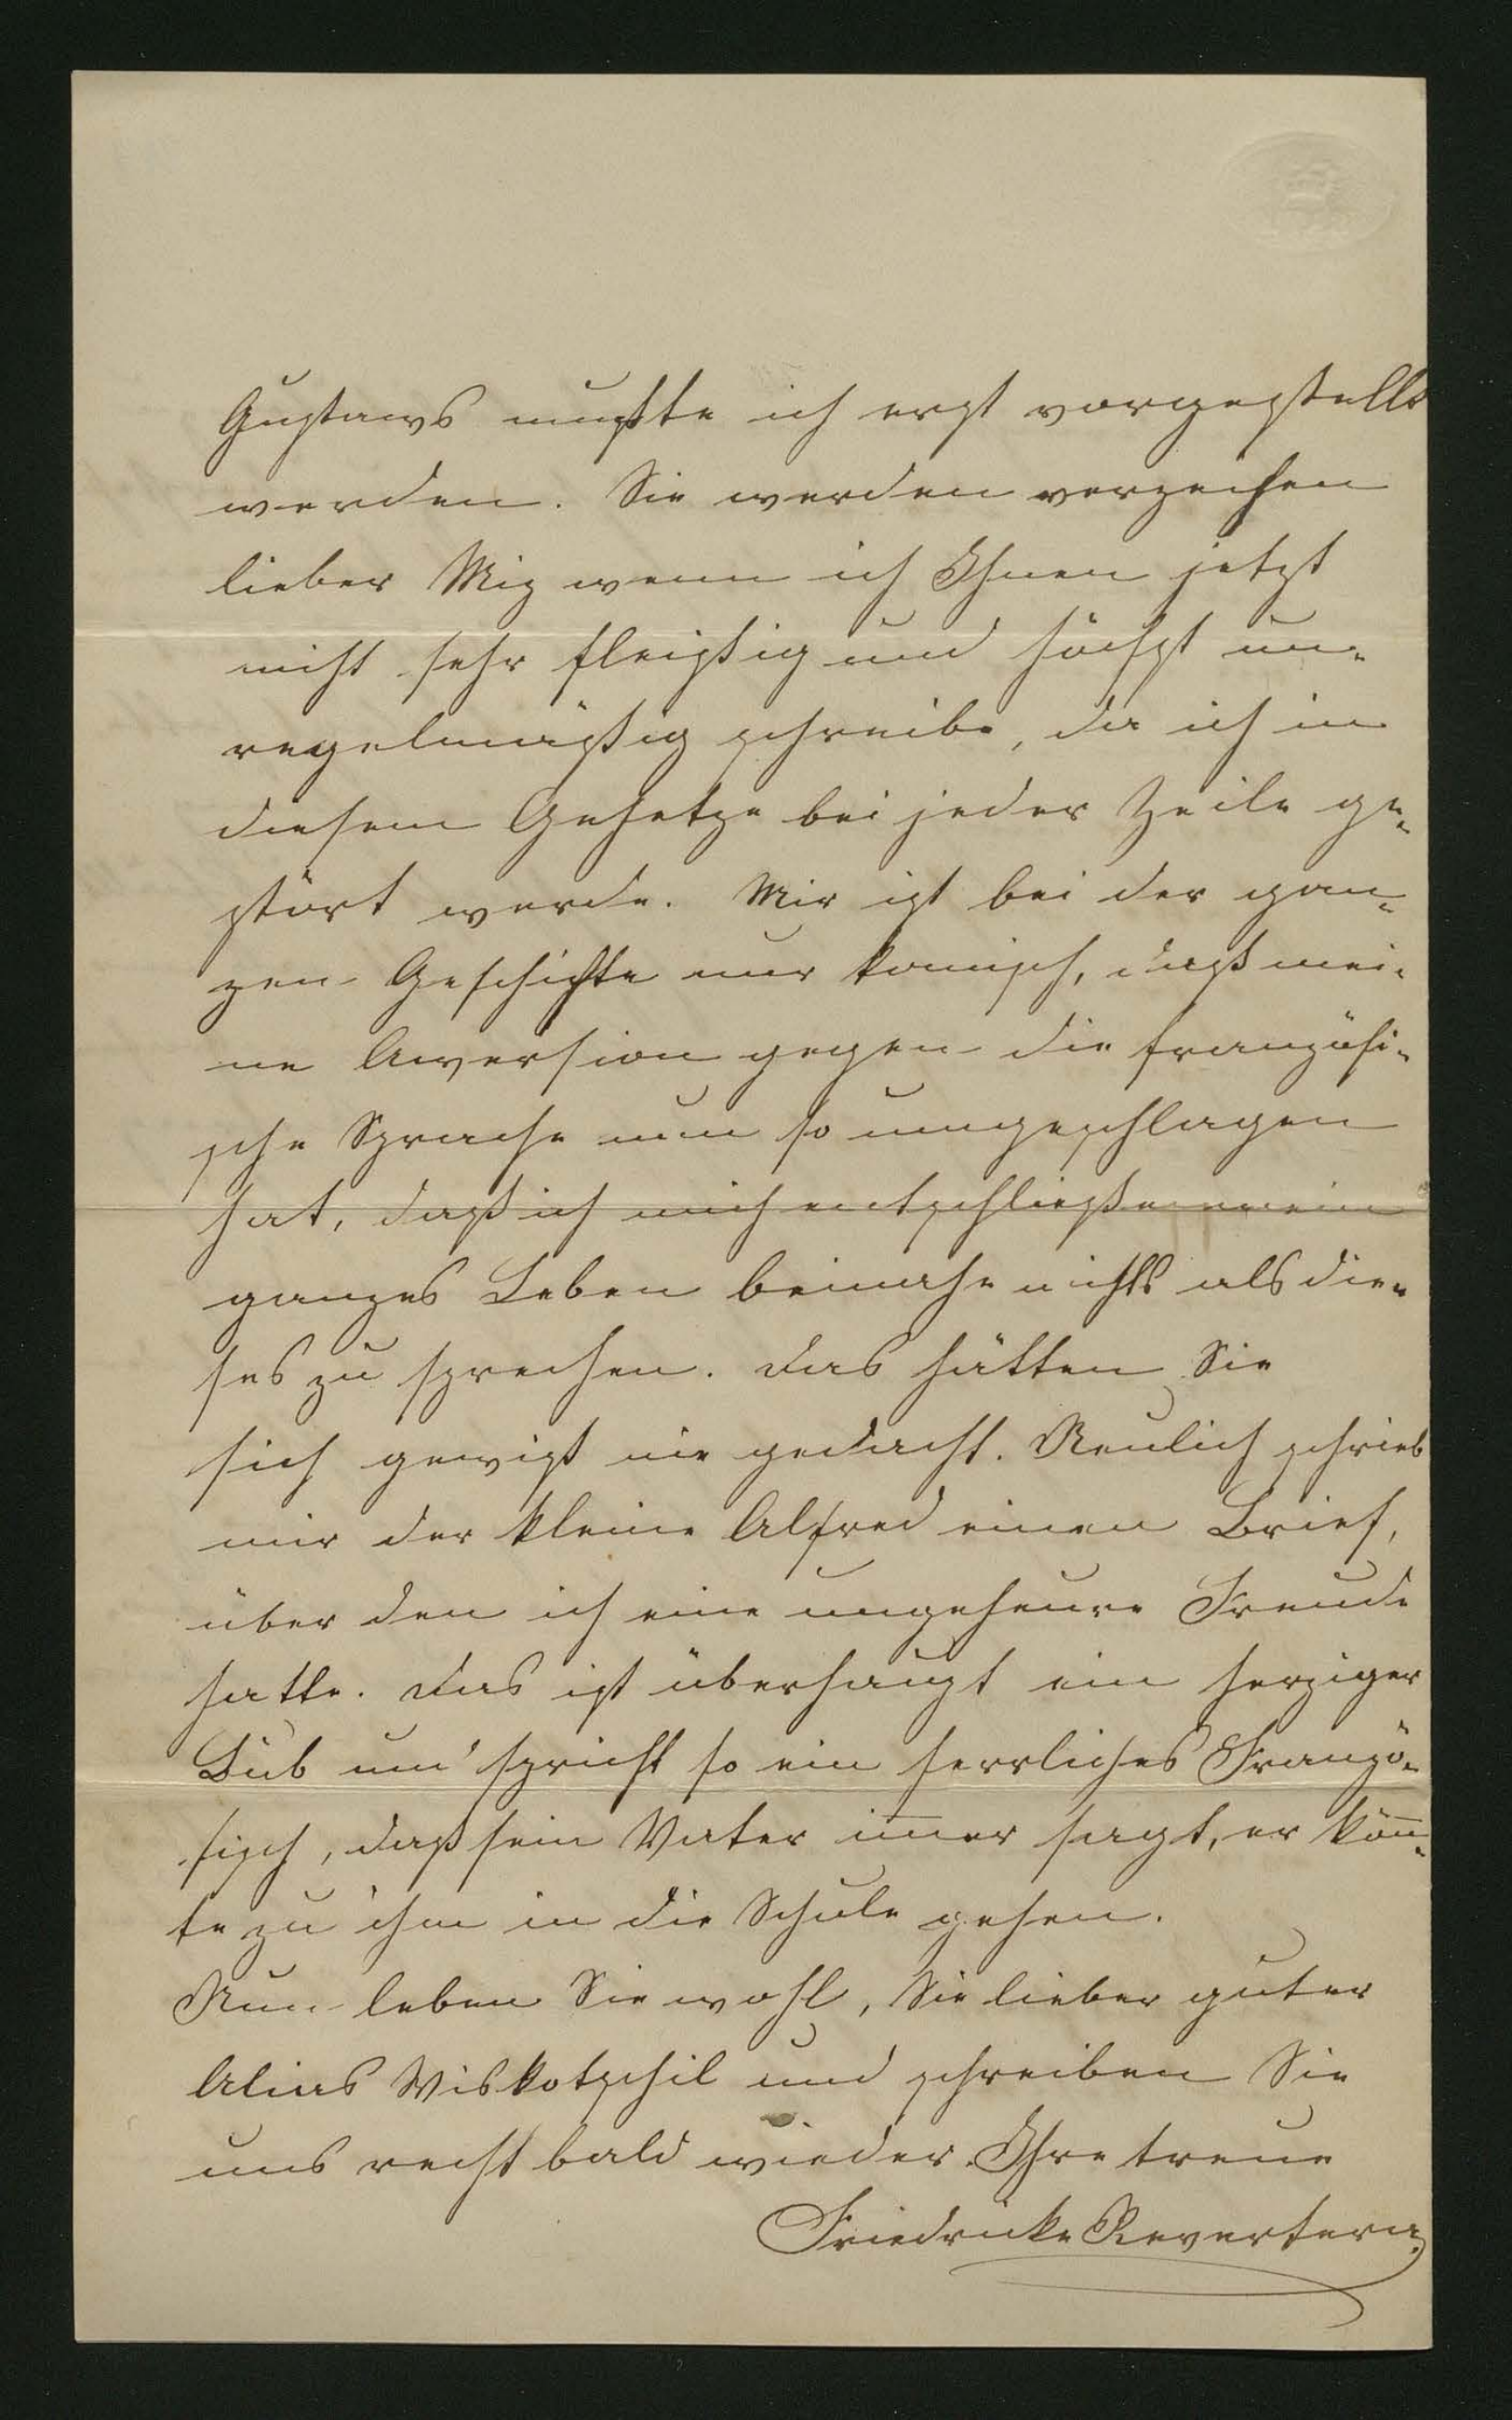 Gustavs mußte ich erst vorgestellt
werden. Sie werden verzeihen
lieber Mis wenn ich Ihnen jetzt
nicht sehr fleißig und höchst un-
regelmäßig schreibe, da ich in
diesem Gehetze bei jeder Zeile ge-
stört werde. Mir ist bei der gan-
zen Geschichte nur komisch, daß mei-
ne Aversion gegen die französi-
sche Sprache nun so umgeschlagen
hat, daß ich mich entschließe mein
ganzes Leben beinahe nichts als die-
ses zu sprechen. Das hätten Sie
sich gewiß nie gedacht. Neulich schrieb
mir der kleine Alfred einen Brief,
über den ich eine ungeheure Freude
hatte. Das ist überhaupt ein herziger
Bub un' spricht so ein herrliches Franzö-
sisch, daß sein Vater im̅er sagt, er kön̅-
te zu ihm in die Schule gehen.
Nun leben Sie wohl, Sie lieber guter
Alias Viskotschil und schreiben Sie
uns recht bald wieder. Ihre treue
Friedricke Revertera.